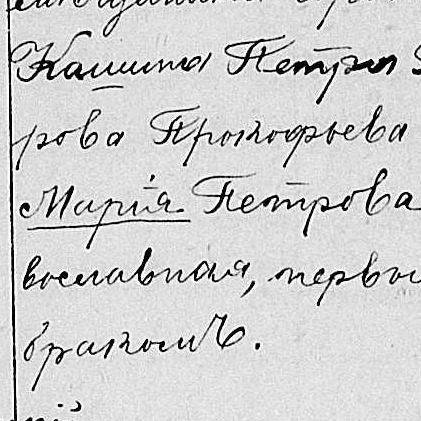 Кашина Петра
рова Прокофьева
Марія Петрова
вославная, первы
бракомъ.